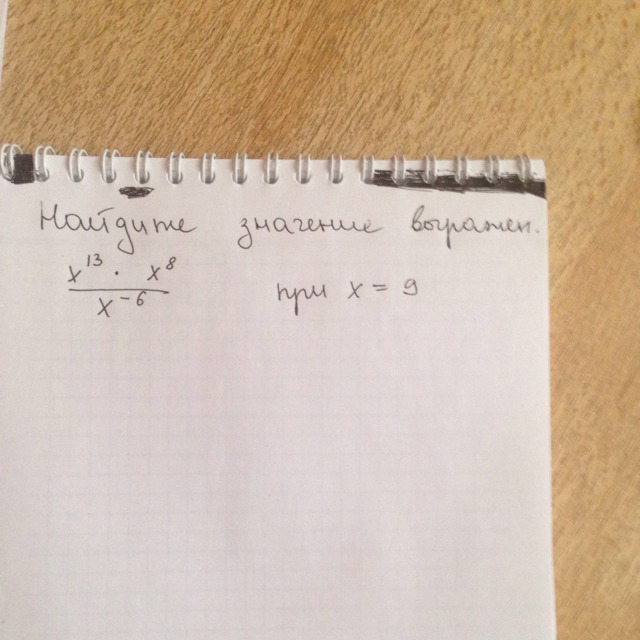 Найдите значение выражен.
x¹³ · x⁸ / x⁻⁶ при x = 9